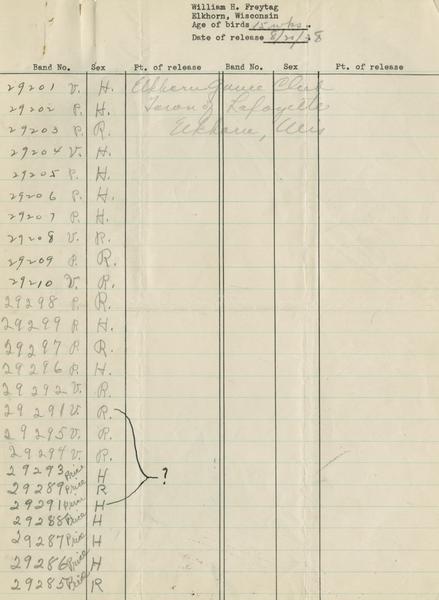 William H. Freytag
Elkhorn, Wisconsin
Age of birds 15 wks.
Date of release 8/20/38
Band No. Sex Pt. of release Band No. Sex Pt. of release
29201 V. H. Elkhorn Game Club
29202 P. H. Town of Lafayette
29203 P. R. Elkhorn, Wis
29204 V. H.
29205 P. H.
29206 P. H.
29207 P. H.
29208 V. R.
29209 P. R.
29210 V. R.
29298 P. R.
29299 P. H.
29297 P. R.
29296 P. H.
29292 V. R.
29291 V. R.
29295 V. R.
29294 V. R.
29293 H ?
29289 Price R
29291 H
29288 Price H
29287 Price H
29286 Price H
29285 Price R